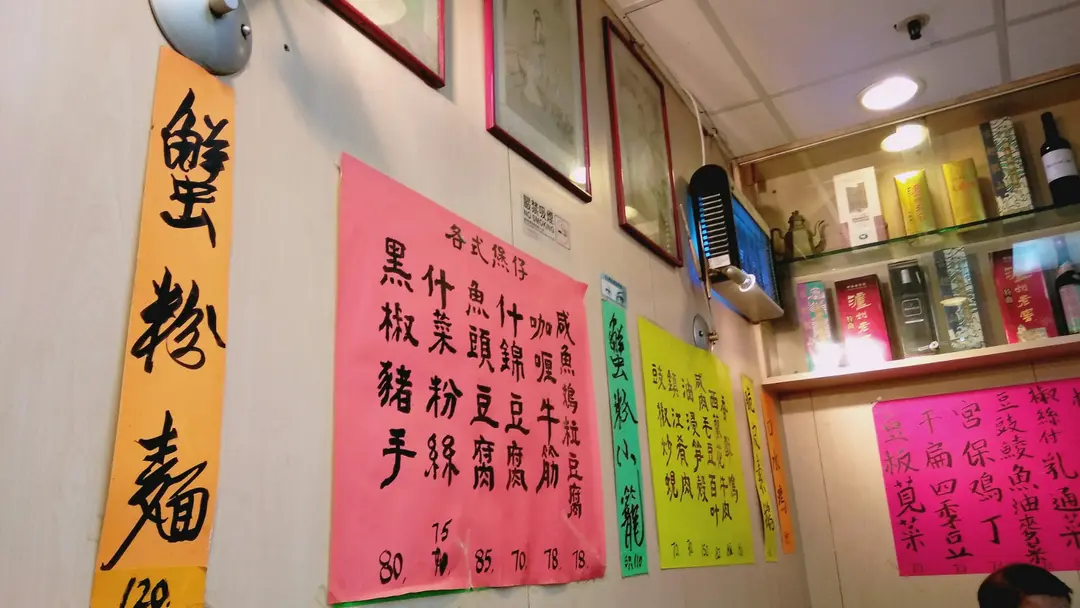 蟹粉麵
120.
各式煲仔
咸魚鷄粒豆腐 78.
咖喱牛筋 78.
什錦豆腐 70.
魚頭豆腐 85.
什菜粉絲 75
黑椒豬手 80.
嚴禁吸煙
NO SMOKING
蟹粉小籠
西蘭花牛肉
咸肉毛豆百叶
油浸笋殼
鎮江肴肉
豉椒炒蜆
泸州老
泸州老窖
椒絲什乳通菜
豆豉鯪魚油麥菜
宮保鳮丁
干扁四季豆
豆板莧菜